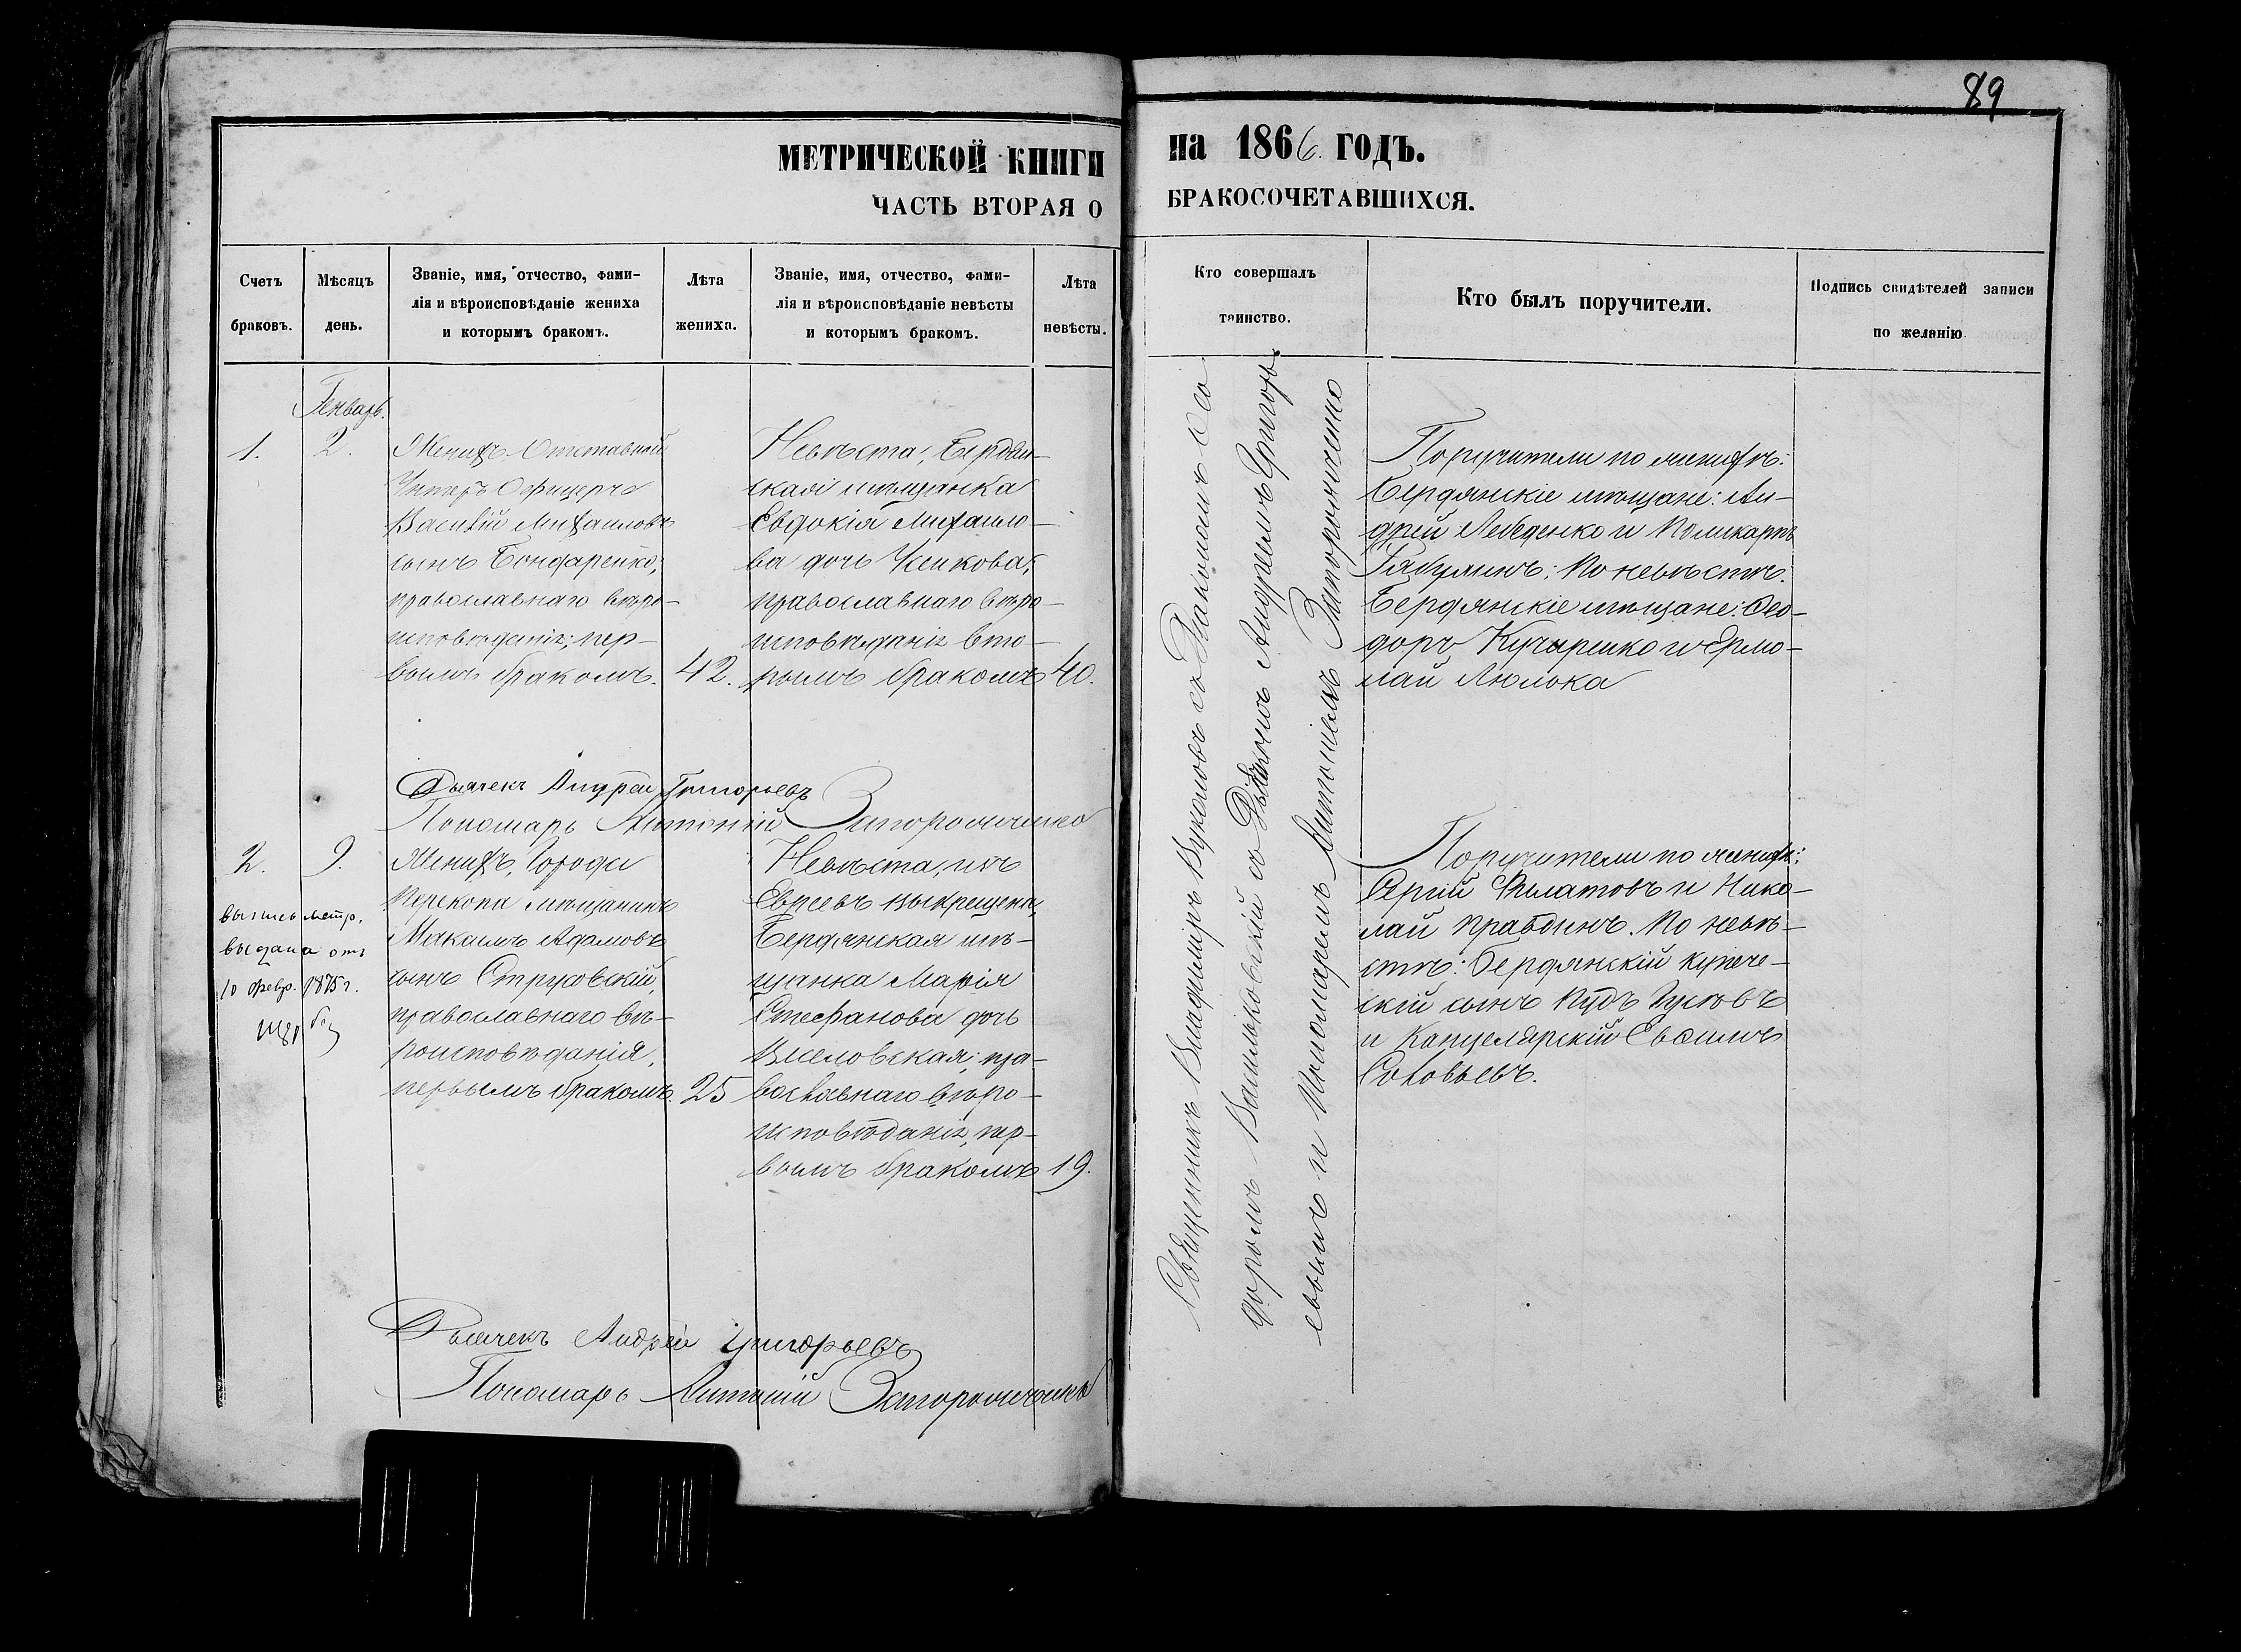 89
МЕТРИЧЕСКОЙ КНИГИ на 1866 ГОДЪ.
ЧАСТЬ ВТОРАЯ О БРАКОСОЧЕТАВШИХСЯ.
Счетъ браковъ.
Мѣсяцъ день.
Званіе, имя, отчество, фами-
лія и вѣроисповѣданіе жениха
и которымъ бракомъ.
Лѣта жениха.
Званіе, имя, отчество, фами-
лія и вѣроисповѣданіе невѣсты
и которымъ бракомъ.
Лѣта невѣсты.
Кто совершалъ
таинство.
Кто былъ поручители.
Подпись свидѣтелей записи
по желанію
Генварь.
1.
2.
Женихъ: Отставной
Унтеръ Офицеръ
Василій Михаиловъ
сынъ Бондаренко,
православнаго вѣро-
исповѣданія; пер-
вымъ бракомъ.
42.
Невѣста, Бердян-
ская мѣщанка
Евдокія Михаило-
ва дочь
православнаго вѣро-
исповѣданія вто-
рымъ бракомъ
40.
Священникъ Владиміръ Вуколовъ съ Діакономъ Ѳео-
доромъ Васильковскій съ Дьячкомъ Андреемъ Григорь-
евымъ и Пономаремъ Антоніемъ Запорожченко
Поручители по женихѣ:
Бердянскіе мѣщане: Ан-
дрей Лебеденко и Поликарпъ
По невѣстѣ:
Бердянскіе мѣщане: Ѳео-
доръ Кучеренко и Ермо-
лай Люлька
Дьячекъ Андрей Григорьевъ
Пономарь Антоній Запорожченко
2.
9.
выпись метр.
выдана отъ
10 февр. 1875 г.
Женихъ, Города
Перекопа мѣщанинъ
Максимъ Адамовъ
сынъ Струковскій,
православнаго вѣ-
роисповѣданія,
первымъ бракомъ
25
Невѣста, изъ
Евреевъ выкрещенн.
Бердянская мѣ-
щанка Марія
Стефанова дочь
пра-
вославнаго вѣро-
исповѣданія, пер-
вымъ бракомъ
19.
Поручители по женихѣ:
Сергій Филатовъ и Нико-
лай Правдинъ. По невѣ-
стѣ: Бердянскій купече-
скій сынъ Гусевъ
и Канцелярскій Евфимъ
Соловьевъ.
Дьячекъ Андрей Григорьевъ
Пономарь Антоній Запорожченко